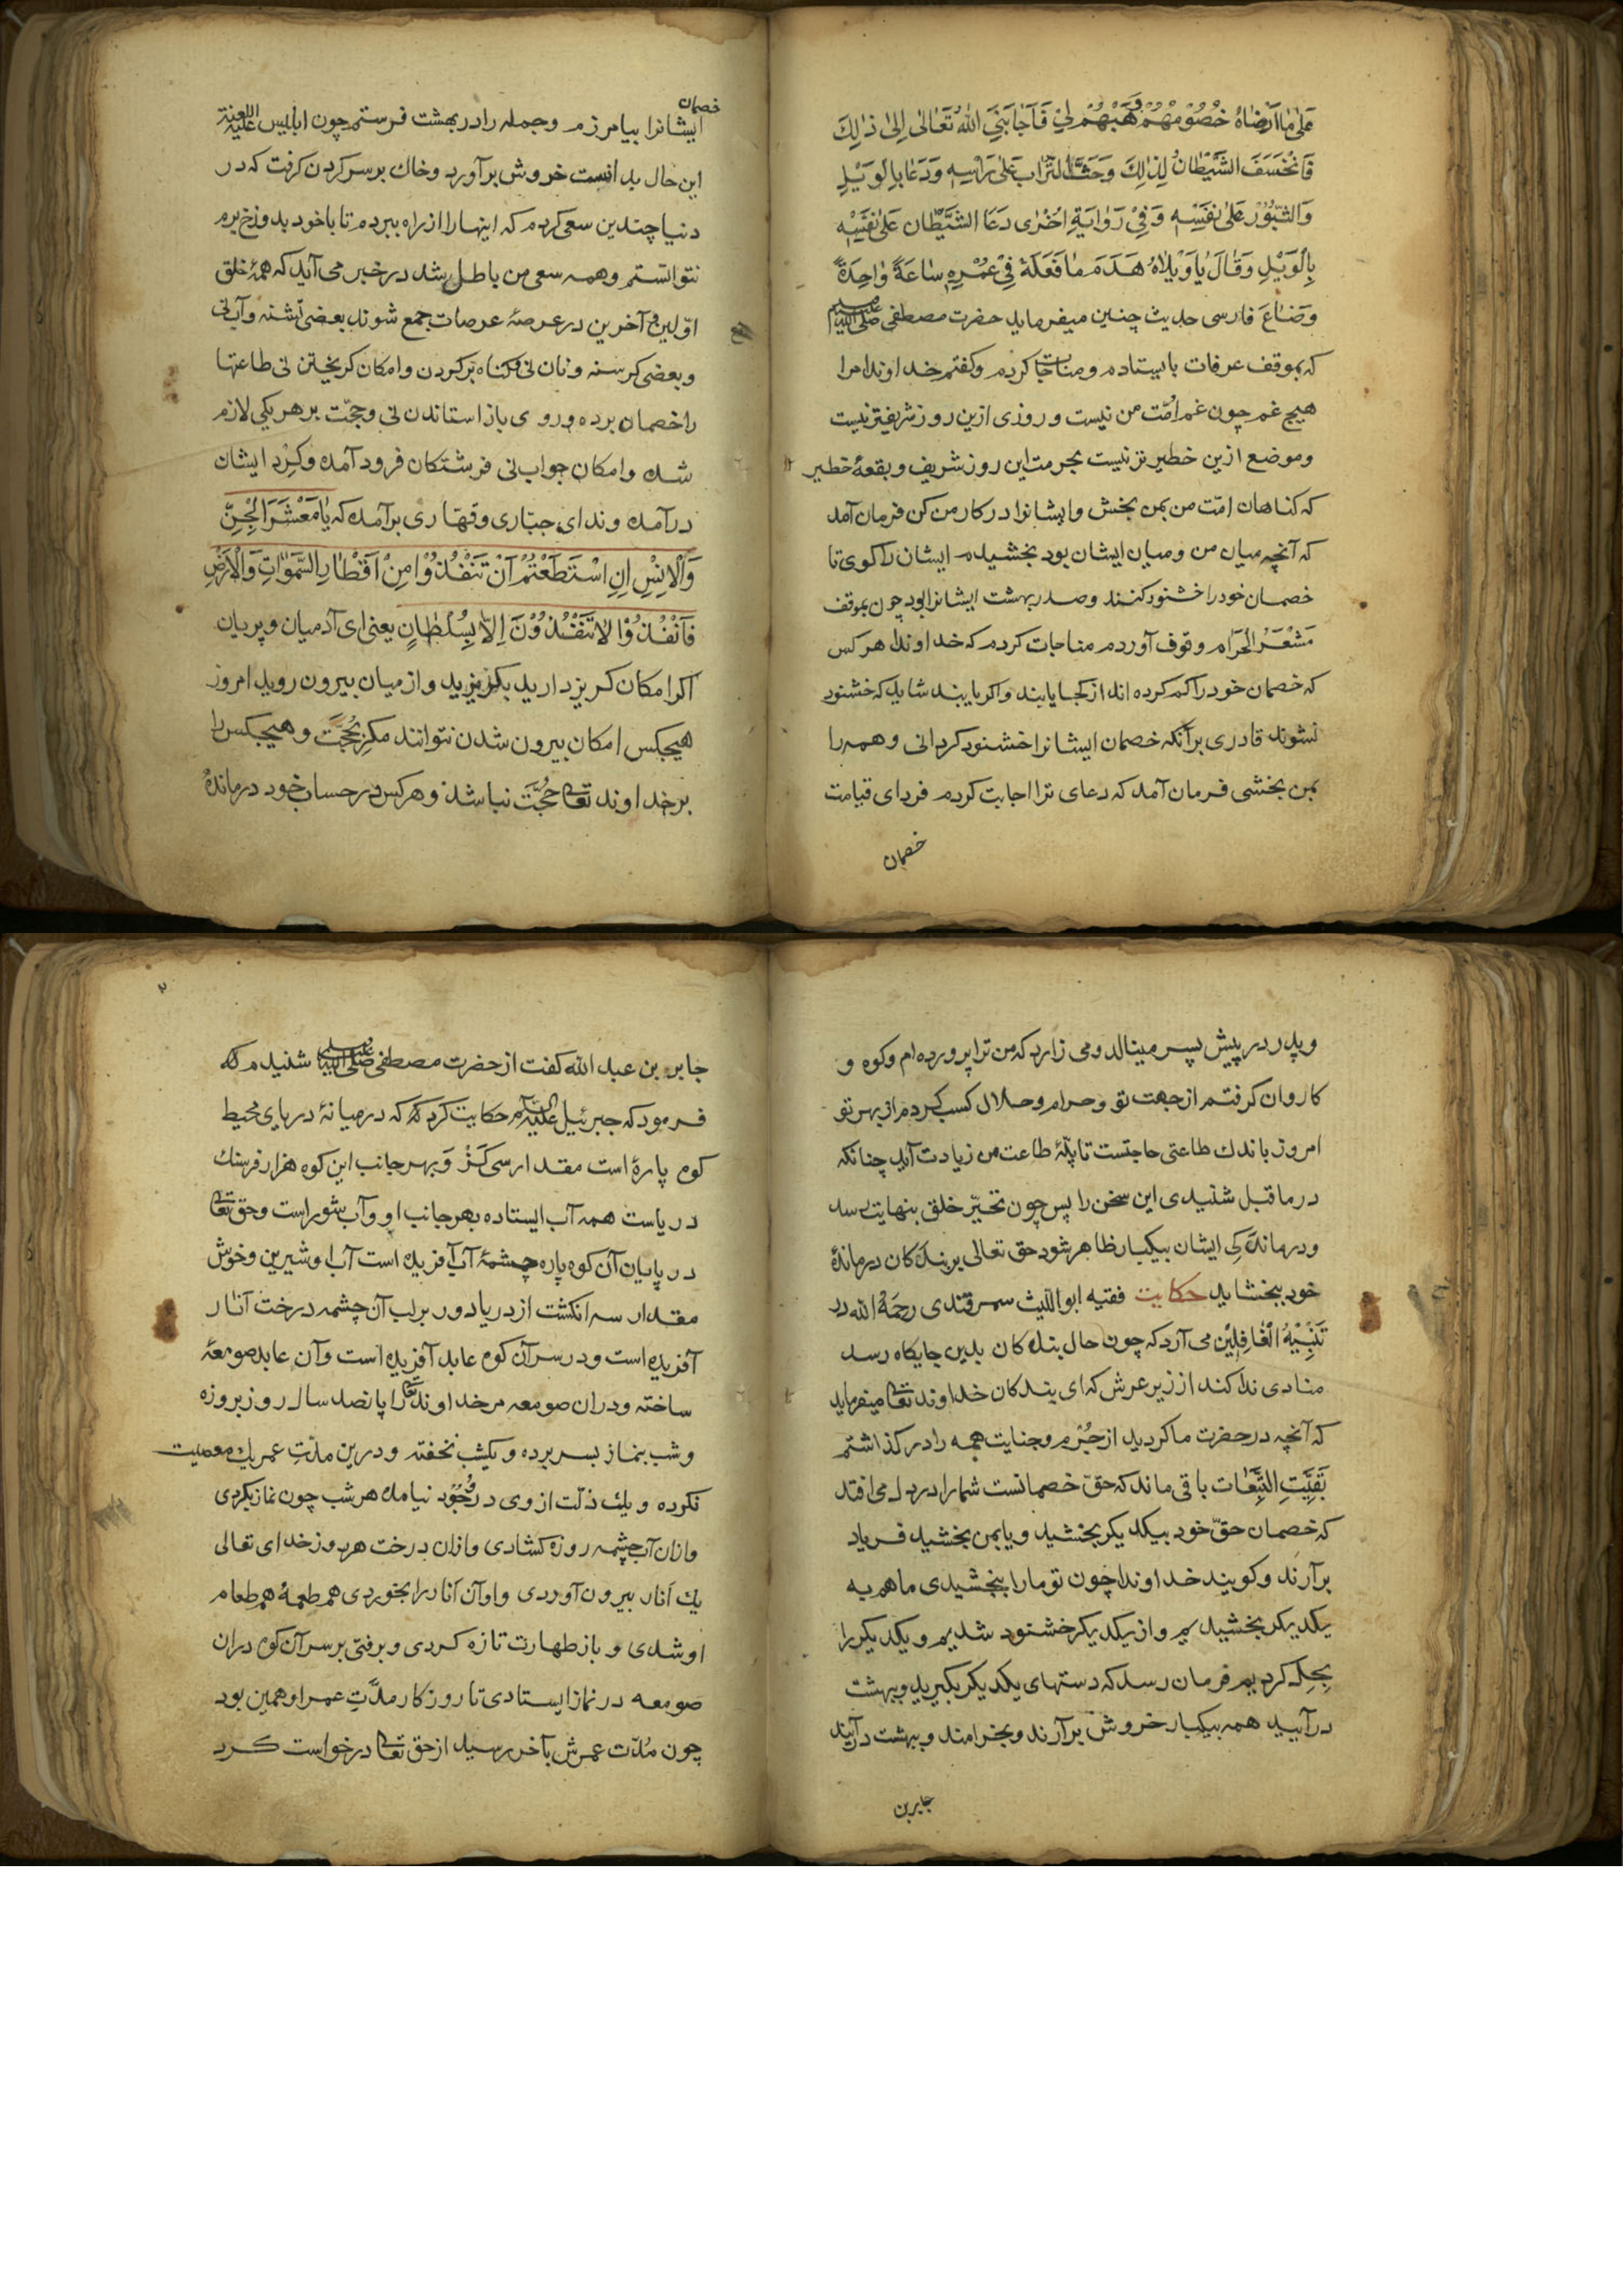 عَلٰی مَا اَرْضَاهُ خُصُوْمُهُمْ وَهَبْهُمْ لِيْ فَاَجَابَنِيَ اللّٰهُ تَعَالٰی اِلٰی ذٰلِكَ
فَانْخَسَفَ الشَّيْطَانُ لِذٰلِكَ وَحَثَا التُّرَابَ عَلٰی رَاْسِهٖ وَدَعَا بِالْوَيْلِ
وَالثُّبُوْرِ عَلٰی نَفْسِهٖ وَفِيْ رَوَايَةِ اُخْرٰی دَعَا الشَّيْطَان عَلٰی نَفْسِهٖ
بِالْوَيْلِ وَقَالَ يَاوَيْلَاهُ هَدَمَ مَا فَعَلَهٗ فِيْ عُمْرِهٖ سَاعَةً وَاحِدَةً
وَضَاعَ فارسی حدیث چنین میفرماید حضرت مصطفی صلی الله علیه وسلم
که بموقف عرفات بایستادم ومناجات کردم وکفتم خداوندا مرا
هیچ غم چون غم امّت من نیست وروزی ازین روز شریفتر نیست
وموضع ازین خطیر تر نیست بحرمت این روز شریف وبقعهٔ خطیر
که کناهان امّت من بمن بخش وایشانرا در کار من کن فرمان آمد
که آنچه میان من ومیان ایشان بود بخشیدم ایشان را کوی تا
خصمان خود را خشنود کنند وصدر بهشت ایشانرا بود چون بموقف
مَشْعَرُ الْحَرَام وقوف آوردم مناجات کردم که خداوندا هر کس
که خصمان خود را کم کرده اند از کجا یابند واکر یابند شاید که خشنود
نشوند قادری برآنکه خصمان ایشانرا خشنود کردانی وهمه را
بمن بخشی فرمان آمد که دعای ترا اجابت کردم فردای قیامت
خصمان
خصمان
ایشانرا بیامرزم وجمله را در بهشت فرستم چون ابلیس علیه اللعنة
این حال بدانست خروش برآورد وخاك برسر کردن کرفت که در
دنیا چندین سعی کردم که اینها را از راه ببردم تا با خود بدوزخ برم
نتوانستم وهمه سعی من باطل شد در خبر می آید که همهٔ خلق
اوّلین وآخرین در عرصهٔ عرصات جمع شوند بعضی تشنه وآب نی
وبعضی کرسنه ونان نی وکناه بر کردن وامکان کریختن نی طاعتها
را خصمان برده وروی باز استاندن نی وحجّت بر هر یکی لازم
شده وامکان جواب نی فرشتکان فرود آمده وکرد ایشان
درآمده وندای جبّاری وقهّاری برآمده که يَامَعْشَرَ الْجِنِّ
وَالْاِنْسِ اِنِ اسْتَطَعْتُمْ اَنْ تَنْفُذُوْا مِنْ اَقْطَارِ السَّمٰوَاتِ وَالْاَرْضِ
فَانْفُذُوْا لَا تَنْفُذُوْنَ اِلَّا بِسُلْطَانٍ یعنی ای آدمیان وپریان
اکر امکان کریز دارید بکریزید واز میان بیرون روید امروز
هیچکس امکان بیرون شدن نتوانند مکر بحُجَّت وهیچکس را
بر خداوند تعالی حُجَّت نباشد وهر کس در حساب خود درماندهٔ
وپدر در پیش پسر مینالد ومی زارد که من ترا پرورده ام وکوه و
کاروان کرفتم از جهت تو وحرام وحلال کسب کردم از بهر تو
امروز باندك طاعتی حاجتست تا پلّهٔ طاعت من زیادت آید چنانکه
در ما قبل شنیدی این سخن را پس چون تحیّر خلق بنهایت رسد
ودرماندکی ایشان بیکبار ظاهر شود حق تعالی بر بندکان درماندهٔ
خود ببخشاید حکایت فقیه ابو اللّیث سمرقندی رحمَهُ الله در
تَنْبِيْهُ الْغَافِلِيْن می آرد که چون حال بندکان بدین جایکاه رسد
منادی ندا کند از زیر عرش که ای بندکان خداوند تعالی میفرماید
که آنچه در حضرت ما کردید از جُرْم وجنایت همه را در کذاشتم
بَقِيَّتِ التَّبِعَات باقی ماند که حقّ خصمانست شما را در دل می افتد
که خصمان حقّ خود بیکدیکر بخشید ویا بمن بخشید فریاد
برآرند وکویند خداوندا چون تو ما را ببخشیدی ما همه
یکدیکر بخشیدیم واز یکدیکر خشنود شدیم ویکدیکر را
بحِل کردیم فرمان رسد که دستهای یکدیکر بکیرید وببهشت
درآیید همه بیکبار خروش برآرند وبخرامند وببهشت درآیند
جابر بن
جابر بن عبد الله کفت از حضرت مصطفی صلی الله علیه وسلم شنیدم که
فرمود که جبرئیل علیه السلام حکایت کرد که در میانهٔ دریای محیط
کوه پارهٔ است مقدار سی کَزْ وَبهر جانب این کوه هزار فرسنك
دریاست همه آب ایستاده بهر جانب او وآب شور است وحق تعالی
در پایان آن کوه پاره چشمهٔ آب آفریده است آب او شیرین وخوش
مقدار سه انکشت از دریا دور بر لب آن چشمه درخت انار
آفریده است ودر سر آن کوه عابد آفریده است وآن عابد صومعهٔ
ساخته ودران صومعه مر خداوند تعالی را پانصد سال روز بروزه
وشب بنماز بسر برده ویکشب نخفته ودرین مدّتِ عمر یك معصیت
نکرده ویك ذلّت از وی در وُجُوْد نیامده هر شب چون نماز بکردی
وازان آب چشمه روزه کشادی وازان درخت هر روز خدای تعالی
یك انار بیرون آوردی واو آن انار را بخوردی هم طعمهٔ هم طعام
او شدی وباز طهارت تازه کردی وبرفتی بر سر آن کوه دران
صومعه در نماز ایستادی تا روز کار مدّتِ عمر او همین بود
چون مُدّت عمرش بآخر رسید از حق تعالی درخواست کرد